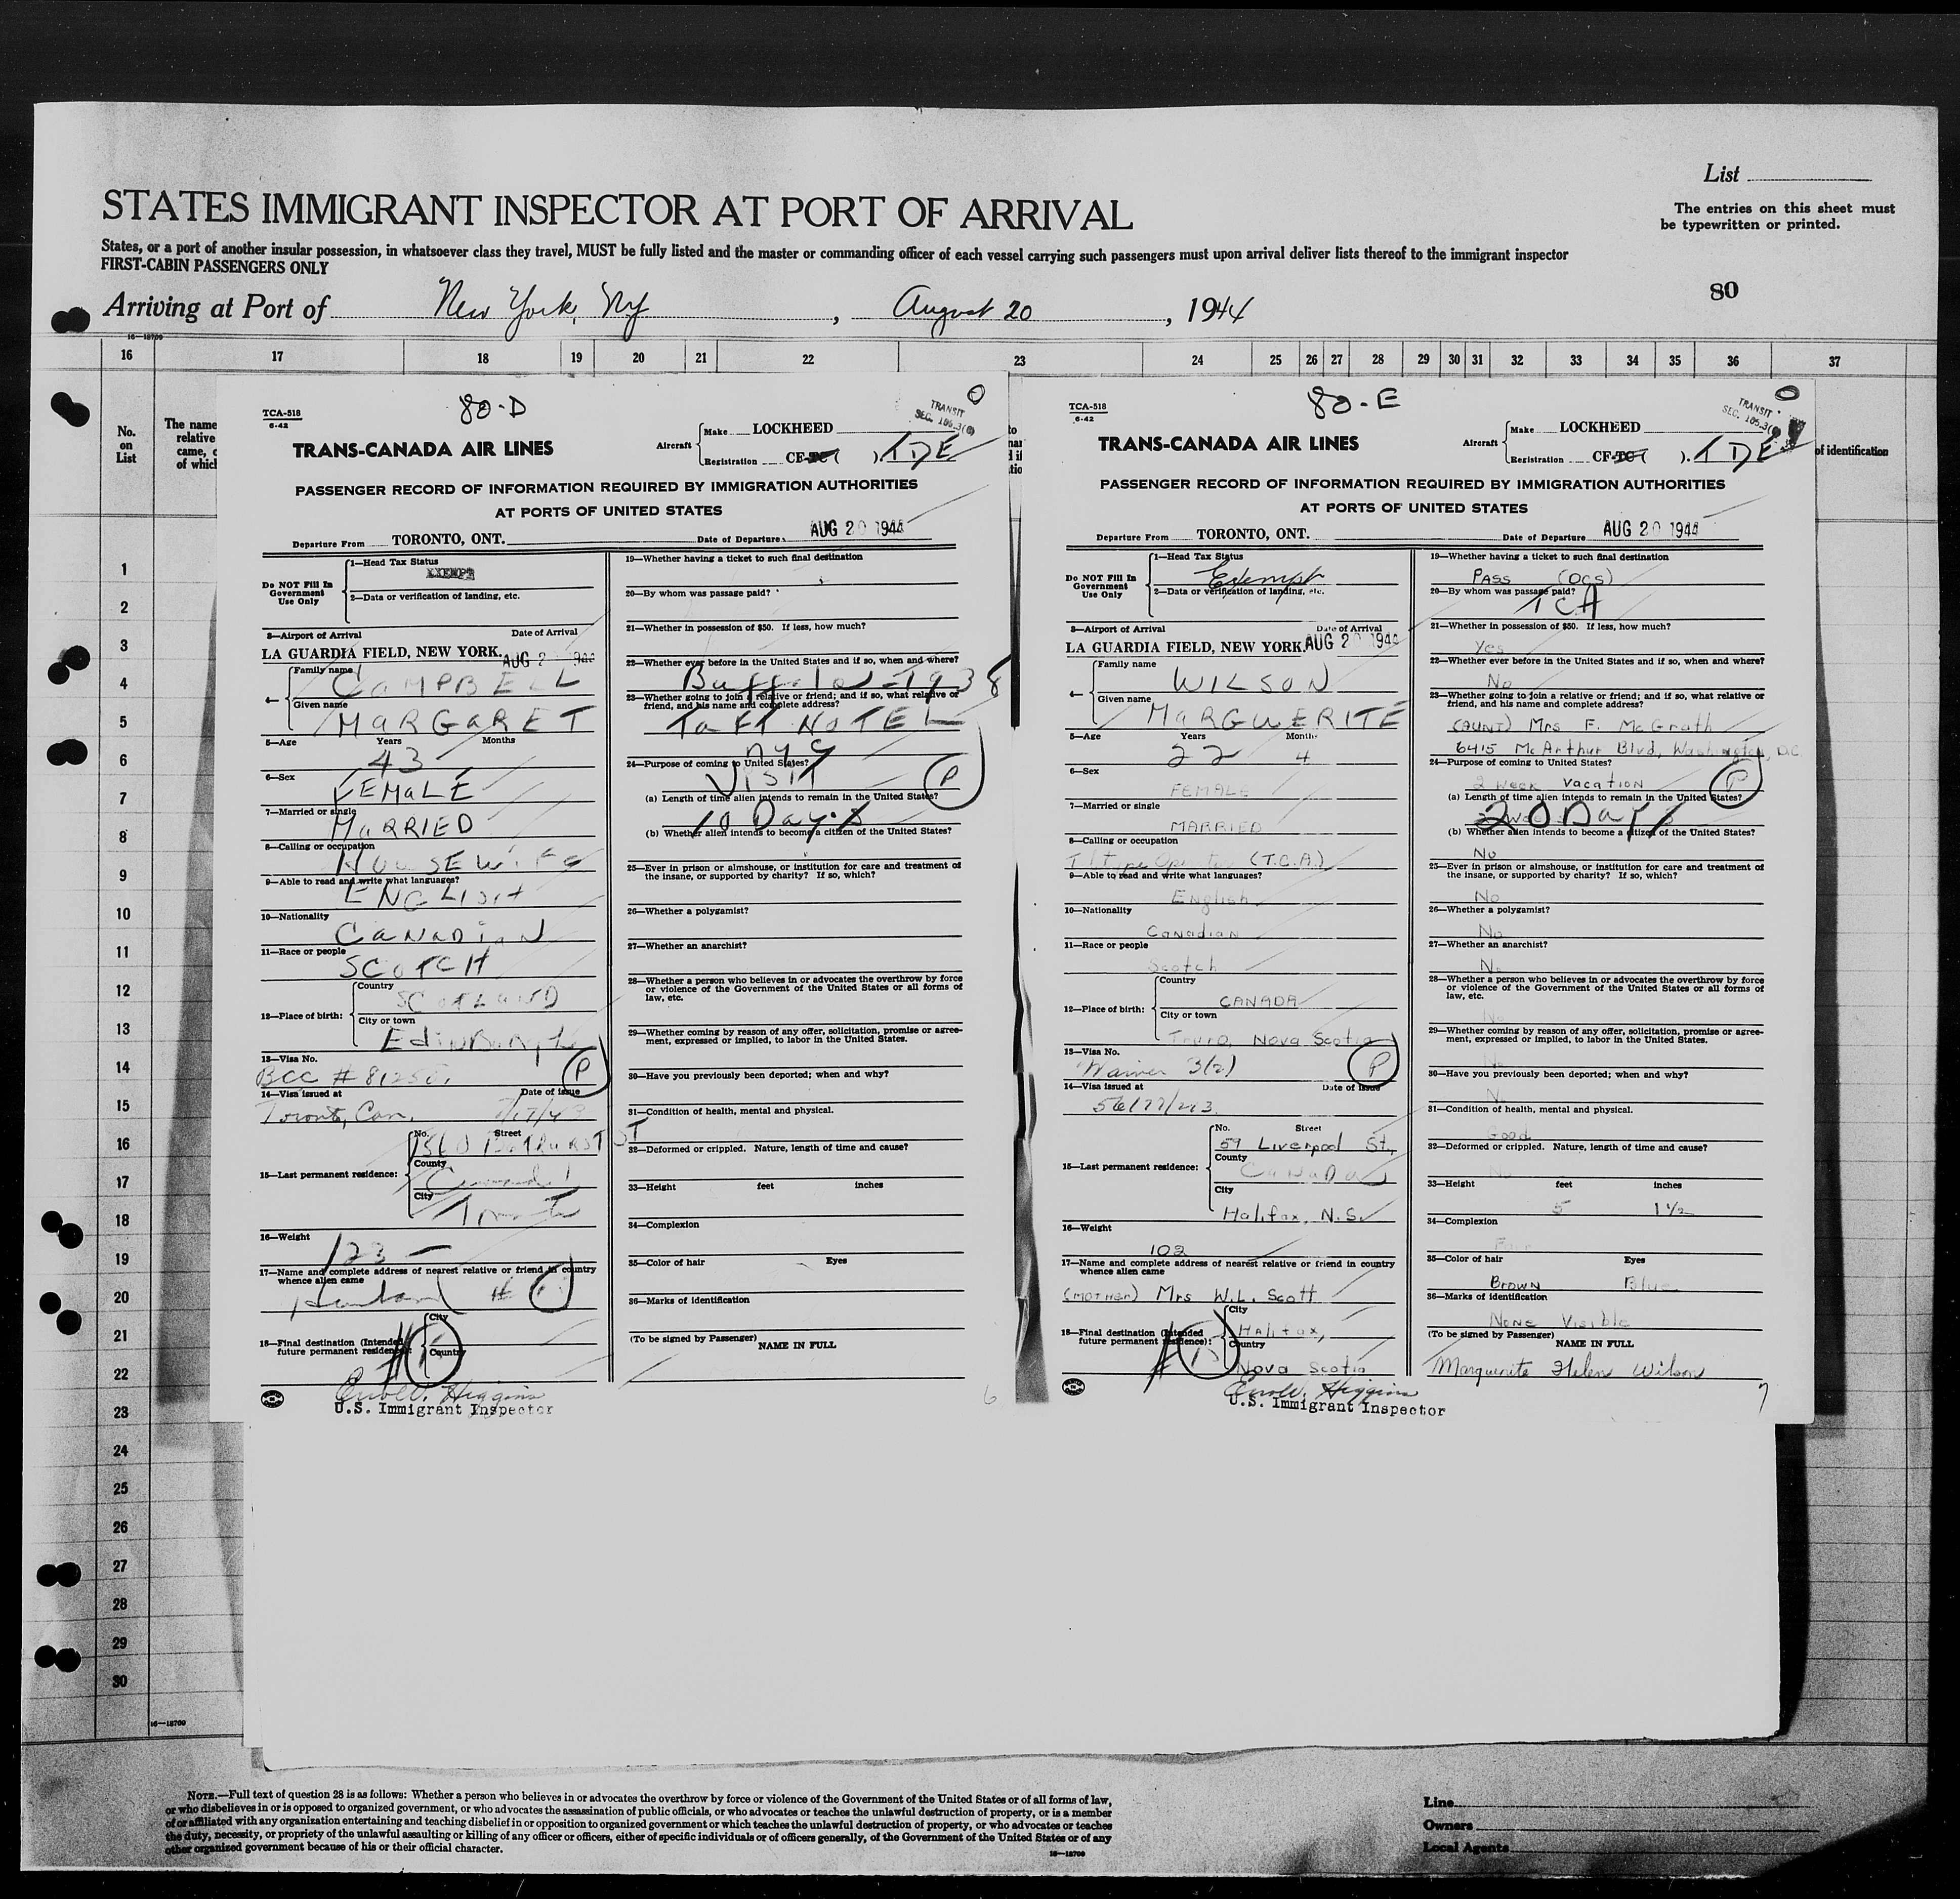 List
The entries on this sheet must
be typewritten or printed.
STATES IMMIGRANT INSPECTOR AT PORT OF ARRIVAL
States, or a port of another insular possession, in whatsoever class they travel, MUST be fully listed and the master or commanding officer of each vessel carrying such passengers must upon arrival deliver lists thereof to the immigrant inspector
FIRST-CABIN PASSENGERS ONLY
80
Arriving at Port of New York, Ny, August 20, 1944
16—18709
16 17 18 19 20 21 22 23 24 25 26 27 28 29 30 31 32 33 34 35 36 37
No.
on
List
The name
relative
came, c
of which
of identification
1
2
3
4
5
6
7
8
9
10
11
12
13
14
15
16
17
18
19
20
21
22
23
24
25
26
27
28
29
30
16—18709
TCA-518
6-42
80-D
TRANSIT
SEC. 105.3
TRANS-CANADA AIR LINES
Aircraft
Make LOCKHEED
Registration CF-TC( ). TDE
PASSENGER RECORD OF INFORMATION REQUIRED BY IMMIGRATION AUTHORITIES
AT PORTS OF UNITED STATES
Departure From TORONTO, ONT. Date of Departure AUG 20 1944
Do NOT Fill In
Government
Use Only
1—Head Tax Status
EXEMPT
2—Data or verification of landing, etc.
3—Airport of Arrival Date of Arrival
LA GUARDIA FIELD, NEW YORK. AUG 20 1944
4— Family name
CAMPBELL
Given name
MARGARET
5—Age Years Months
43
6—Sex
FEMALE
7—Married or single
MARRIED
8—Calling or occupation
HOUSEWIFE
9—Able to read and write what languages?
ENGLISH
10—Nationality
CANADIAN
11—Race or people
SCOTCH
12—Place of birth:
Country
SCOTLAND
City or town
Edinburgh
13—Visa No.
BCC # P
14—Visa issued at Date of issue
Toronto, Can.
15—Last permanent residence:
No. Street
BATHURST ST
County
Canada
City
Toronto
16—Weight
123
17—Name and complete address of nearest relative or friend in country
whence alien came
Husband
18—Final destination (Intended
future permanent residence):
City
Country
U.S. Immigrant Inspector
19—Whether having a ticket to such final destination
20—By whom was passage paid?
21—Whether in possession of $50. If less, how much?
22—Whether ever before in the United States and if so, when and where?
Buffalo - 1938
23—Whether going to join a relative or friend; and if so, what relative or
friend, and his name and complete address?
TaFT HOTEL
NYC
24—Purpose of coming to United States?
VISIT P
(a) Length of time alien intends to remain in the United States?
10 Days
(b) Whether alien intends to become a citizen of the United States?
25—Ever in prison or almshouse, or institution for care and treatment of
the insane, or supported by charity? If so, which?
26—Whether a polygamist?
27—Whether an anarchist?
28—Whether a person who believes in or advocates the overthrow by force
or violence of the Government of the United States or all forms of
law, etc.
29—Whether coming by reason of any offer, solicitation, promise or agree-
ment, expressed or implied, to labor in the United States.
30—Have you previously been deported; when and why?
31—Condition of health, mental and physical.
32—Deformed or crippled. Nature, length of time and cause?
33—Height feet inches
34—Complexion
35—Color of hair Eyes
36—Marks of identification
(To be signed by Passenger)
NAME IN FULL
6
TCA-518
6-42
80-E
TRANSIT
SEC. 105.3
TRANS-CANADA AIR LINES
Aircraft
Make LOCKHEED
Registration CF-TC( ). TDE
PASSENGER RECORD OF INFORMATION REQUIRED BY IMMIGRATION AUTHORITIES
AT PORTS OF UNITED STATES
Departure From TORONTO, ONT. Date of Departure AUG 20 1944
Do NOT Fill In
Government
Use Only
1—Head Tax Status
Exempt
2—Data or verification of landing, etc.
3—Airport of Arrival Date of Arrival
LA GUARDIA FIELD, NEW YORK. AUG 20 1944
4— Family name
WILSON
Given name
MARGUERITE
5—Age Years Months
22 4
6—Sex
FEMALE
7—Married or single
MARRIED
8—Calling or occupation
(T.C.A.)
9—Able to read and write what languages?
English
10—Nationality
Canadian
11—Race or people
Scotch
12—Place of birth:
Country
CANADA
City or town
Truro, Nova Scotia
13—Visa No.
Waiver 3(2) P
14—Visa issued at Date of issue
15—Last permanent residence:
No. Street
59 Liverpool St.,
County
CANADA
City
Halifax, N.S.
16—Weight
102
17—Name and complete address of nearest relative or friend in country
whence alien came
(MOTHER) Mrs W.L. Scott
18—Final destination (Intended
future permanent residence):
City
Halifax,
Country
Nova Scotia
U.S. Immigrant Inspector
19—Whether having a ticket to such final destination
PASS (OCS)
20—By whom was passage paid?
TCA
21—Whether in possession of $50. If less, how much?
Yes
22—Whether ever before in the United States and if so, when and where?
No
23—Whether going to join a relative or friend; and if so, what relative or
friend, and his name and complete address?
(AUNT) Mrs F. McGrath
6415 McArthur Blvd, Washington, DC
24—Purpose of coming to United States?
2 week vacation P
(a) Length of time alien intends to remain in the United States?
20 Days
(b) Whether alien intends to become a citizen of the United States?
No
25—Ever in prison or almshouse, or institution for care and treatment of
the insane, or supported by charity? If so, which?
No
26—Whether a polygamist?
No
27—Whether an anarchist?
No
28—Whether a person who believes in or advocates the overthrow by force
or violence of the Government of the United States or all forms of
law, etc.
No
29—Whether coming by reason of any offer, solicitation, promise or agree-
ment, expressed or implied, to labor in the United States.
No
30—Have you previously been deported; when and why?
No
31—Condition of health, mental and physical.
Good
32—Deformed or crippled. Nature, length of time and cause?
No
33—Height feet inches
5 1 1/2
34—Complexion
Fair
35—Color of hair Eyes
Brown Blue
36—Marks of identification
None Visible
(To be signed by Passenger)
NAME IN FULL
Marguerite Helen Wilson
7
NOTE.—Full text of question 28 is as follows: Whether a person who believes in or advocates the overthrow by force or violence of the Government of the United States or of all forms of law,
or who disbelieves in or is opposed to organized government, or who advocates the assassination of public officials, or who advocates or teaches the unlawful destruction of property, or is a member
of or affiliated with any organization entertaining and teaching disbelief in or opposition to organized government or which teaches the unlawful destruction of property, or who advocates or teaches
the duty, necessity, or propriety of the unlawful assaulting or killing of any officer or officers, either of specific individuals or of officers generally, of the Government of the United States or of any
other organized government because of his or their official character.
16—18709
Line
Owners
Local Agents